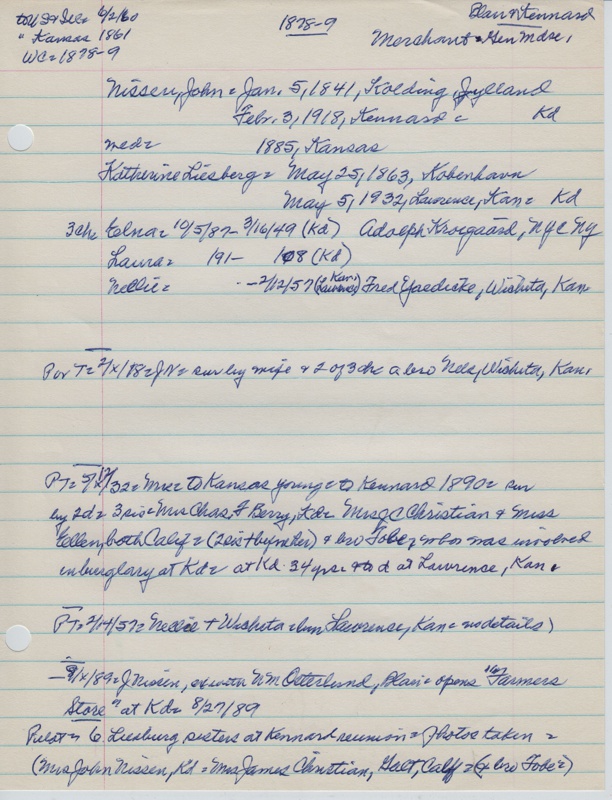 to US & Ill = 6/2/60
" Kansas 1861
WC = 1878-9
1878-9
Blair & Kennard
Merchant = Gen Mdse.
Nissen, John = Jan. 5, 1841, Kolding Jylland
Febr. 3, 1918, Kennard = Kd
med = 1885, Kansas
Katherine Liesberg = May 25, 1863, Kobenhavn
May 5, 1932, Lawrence, Kan = Kd
3ch = Edna = 10/5/87 - 3/16/49 (Kd) Adolph Krogaard, NYC NY
Laura = 191- 198 (Kd)
Nellie = - 2/12/57 (Lawrence Kan.) Fred Gaedicke, Wichita, Kan
Por T = 2/x/18 = JN = sur by wife & 2 of 3 ch a bro Nels, Wichita, Kan.
PT = 5/12/32 = Mrs = to Kansas young = to Kennard 1890 = sur
by 2d = 3 sis = Mrs Chas F Berry, Kd = Mrs J C Christian & Miss
Ellen, both Calif = (2 sis + ) & bro Tobe, who was involved
in burglary at Kd = at Kd 34 yrs = & d at Lawrence, Kan =
PT = 2/14/57 = Nellie + Wichita = bur Lawrence, Kan = no details)
- 9/x/89 = J Nissen, ex with Wm Osterlund, Blair = opens "Farmers
Store" at Kd = 8/27/89
Pilot = 6 Liesburg sisters at Kennard reunion = Photos taken =
(Mrs John Nissen, Kd = Mrs James Christian, Galt, Calif = (& bro Tobe)